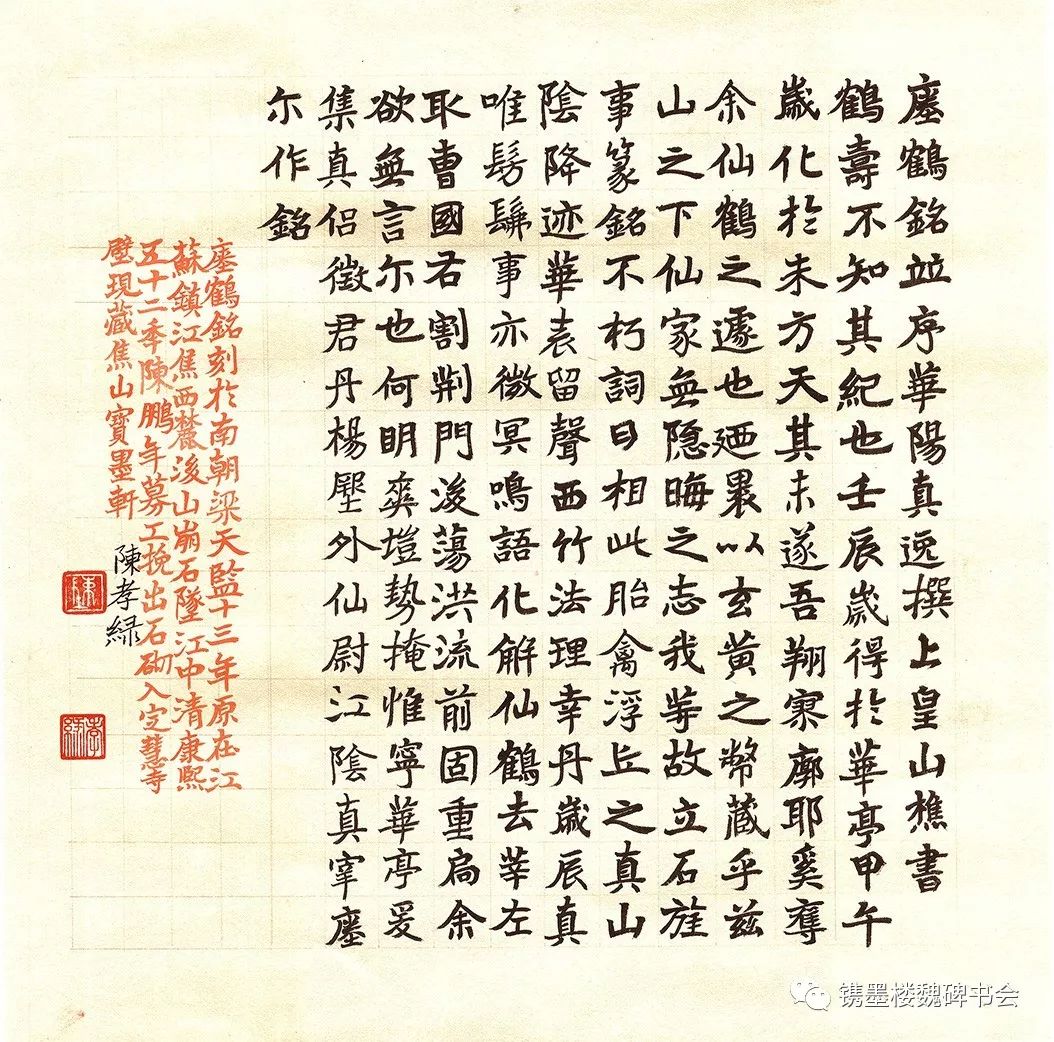 瘞鶴銘並序華陽真逸撰上皇山樵書
鶴壽不知其紀也壬辰歲得於華亭甲午
歲化於朱方天其未遂吾翔寥廓耶奚奪
余仙鶴之遽也迺裹以玄黄之幣藏乎茲
山之下仙家無隱晦之志我等故立石旌
事篆銘不朽詞曰相此胎禽浮丘之真山
陰降迹華表留聲西竹法理幸丹歲辰真
唯髣髴事亦微冥鳴語化解仙鶴去莘左
取曹國右割荆門後蕩洪流前固重扃余
欲無言尔也何明爽塏勢掩惟寧華亭爰
集真侣徵君丹楊壓外仙尉江陰真宰瘞
尔作銘
瘞鶴銘刻於南朝梁天監十三年原在江
蘇鎮江焦西麓後山崩石墜江中清康熙
五十二年陳鵬年募工挽出石砌入定慧寺
壁現藏焦山寶墨軒
陳孝緑
镌墨楼魏碑书会